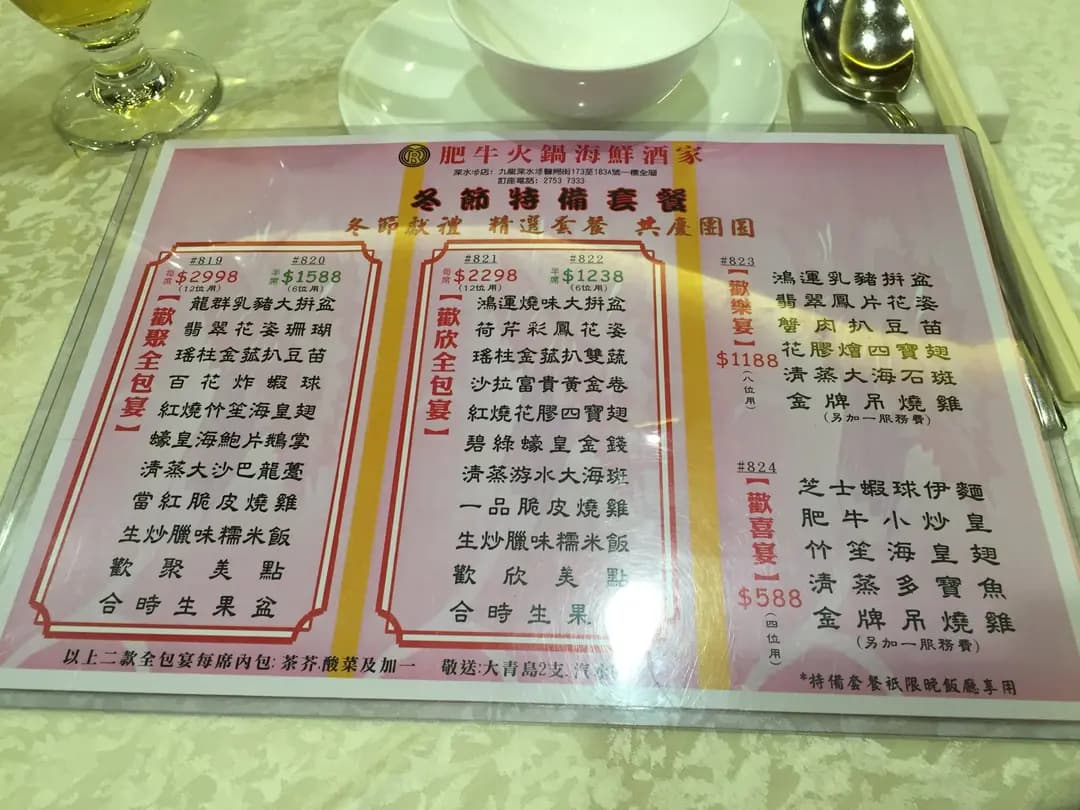 肥牛火鍋海鮮酒家
深水埗店：九龍深水埗醫局街173至183A號一樓全層
訂座電話：2753 7333
冬節特備套餐
冬節獻禮 精選套餐 共慶團圓
#819 #820
每席 $2998 半席 $1588
(12位用) (6位用)
【歡聚全包宴】
龍群乳豬大拼盆
翡翠花姿珊瑚
瑤柱金菰扒豆苗
百花炸蝦球
紅燒竹笙海皇翅
蠔皇海鮑片鵝掌
清蒸大沙巴龍躉
當紅脆皮燒雞
生炒臘味糯米飯
歡聚美點
合時生果盆
#821 #822
每席 $2298 半席 $1238
(12位用) (6位用)
【歡欣全包宴】
鴻運燒味大拼盆
荷芹彩鳳花姿
瑤柱金菰扒雙蔬
沙拉富貴黃金卷
紅燒花膠四寶翅
碧綠蠔皇金錢
清蒸游水大海斑
一品脆皮燒雞
生炒臘味糯米飯
歡欣美點
合時生果
以上二款全包宴每席內包：茶芥.酸菜及加一 敬送：大青島2支.汽水
#823
【歡樂宴】
$1188
(八位用)
鴻運乳豬拼盆
翡翠鳳片花姿
蟹肉扒豆苗
花膠燴四寶翅
清蒸大海石斑
金牌吊燒雞
(另加一服務費)
#824
【歡喜宴】
$588
(四位用)
芝士蝦球伊麵
肥牛小炒皇
竹笙海皇翅
清蒸多寶魚
金牌吊燒雞
(另加一服務費)
*特備套餐祇限晚飯廳享用